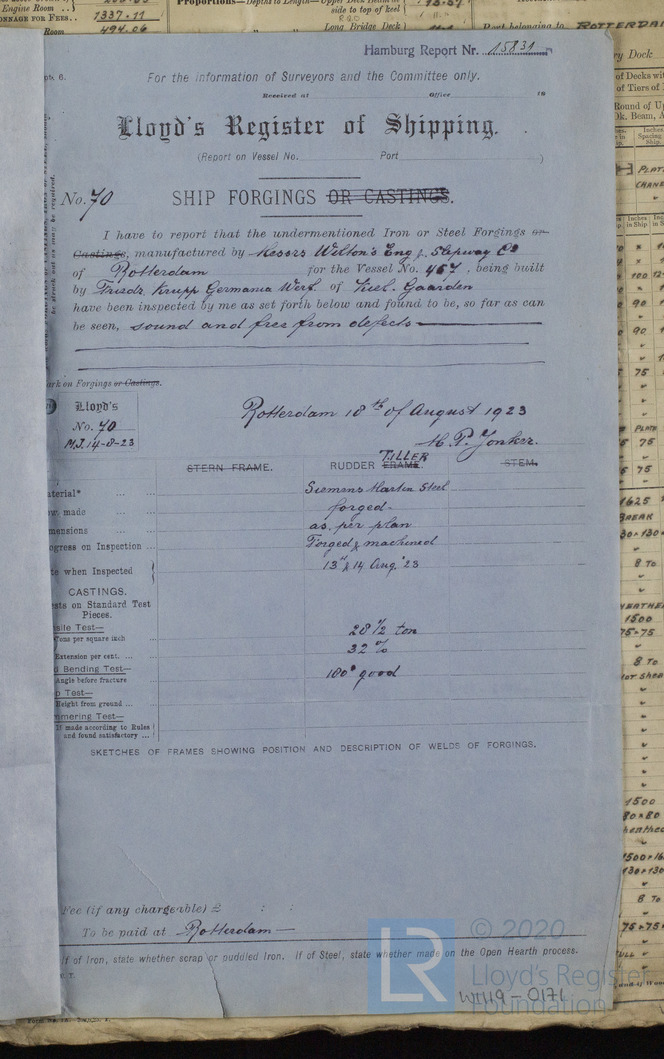 Engine Room
1337.11
494.06
Room
side to top of keel
Long Bridge Deck
Port belonging to ROTTERDA
Hamburg Report Nr. 15831
For the information of Surveyors and the Committee only.
Received at Office 19
Lloyd's Register of Shipping.
(Report on Vessel No. Port )
No. 70 SHIP FORGINGS OR CASTINGS.
I have to report that the undermentioned Iron or Steel Forgings or
Castings, manufactured by Messrs Wilton's Eng & Slipway Co
of Rotterdam for the Vessel No. 457, being built
by Friedr. Krupp Germania Werft of Kiel. Gaarden
have been inspected by me as set forth below and found to be, so far as can
be seen, sound and free from defects
ark on Forgings or Castings.
Lloyd's
No. 70
M.J. 14-8-23
Rotterdam 18th of August 1923
M. P. Jonker.
TILLER
STERN FRAME. RUDDER FRAME. STEM.
aterial* Siemens Martin Steel
w made forged.
mensions as per plan
ogress on Inspection Forged & machined
te when Inspected 13th & 14 Aug. '23
CASTINGS.
sts on Standard Test
Pieces.
sile Test—
Tons per square inch 28 1/2 ton
Extension per cent. 32 %
d Bending Test—
Angle before fracture 180° good
p Test—
Height from ground
mmering Test—
If made according to Rules
and found satisfactory
SKETCHES OF FRAMES SHOWING POSITION AND DESCRIPTION OF WELDS OF FORGINGS.
Fee (if any chargeable) £ : :
To be paid at Rotterdam
If of Iron, state whether scrap or puddled Iron. If of Steel, state whether made on the Open Hearth process.
LR
© 2020
Lloyd's Register
Foundation
W1149-0171